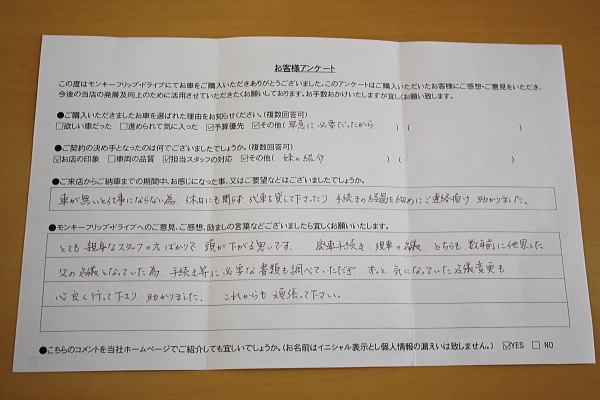 お客様アンケート
この度はモンキーフリップ・ドライブにてお車をご購入いただきありがとうございました。このアンケートはご購入いただいたお客様にご感想・ご意見をいただき、
今後の当店の発展及向上のために活用させていただきたくお願いしております。お手数おかけいたしますが宜しくお願い致します。
●ご購入いただきましたお車を選ばれた理由をお知らせください。(複数回答可)
□欲しい車だった □進められて気に入った ☑予算優先 ☑その他( 早急に必要だったから )( )
●ご契約の決め手となったのは何でございましたでしょうか。(複数回答可)
☑お店の印象 □車両の品質 ☑担当スタッフの対応 ☑その他( 妹の紹介 )( )
●ご来店からご納車までの期間中、お感じになった事、又はご要望などはございましたでしょうか。
車が無いと仕事にならない為、休日にも関らず代車を貸して下さったり 手続きの経過を細めにご連絡頂け 助かりました。
●モンキーフリップ・ドライブへのご意見、ご感想、励ましの言葉などございましたら宜しくお願いいたします。
とても親身なスタッフの方ばかりで、頭が下がる思いです。 廃車手続き、現車の名儀、どちらも数年前に他界した
父の名儀となっていた為 手続き等に必要な書類も調べていただき ずっと気になっていた名儀変更も
心良く行って下さり 助かりました。 これからも頑張って下さい。
●こちらのコメントを当社ホームページでご紹介しても宜しいでしょうか。(お名前はイニシャル表示とし個人情報の漏えいは致しません。) ☑YES □ NO